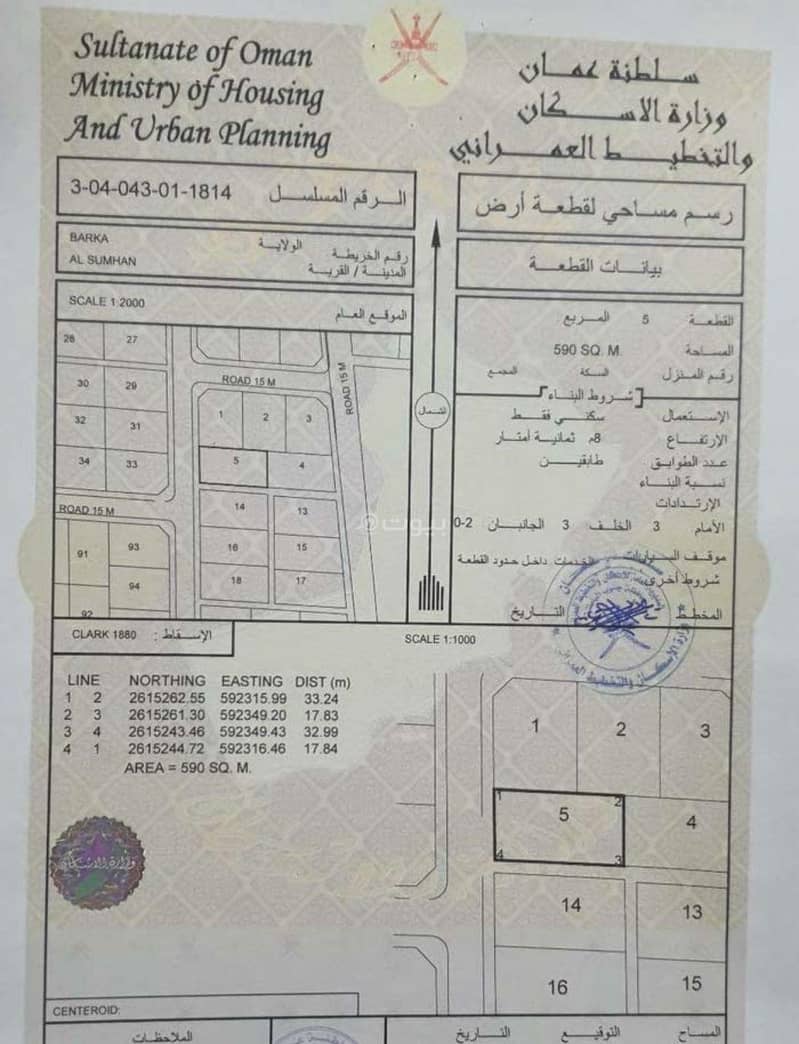 Sultanate of Oman
Ministry of Housing
And Urban Planning
سلطنة عمان
وزارة الاسكان
والتخطيط العمراني
3-04-043-01-1814 الرقم المسلسل
رسم مساحي لقطعة أرض
BARKA الولاية رقم الخريطة
AL SUMHAN المدينة / القرية
بيانات القطعة
SCALE 1:2000 الموقع العام
القطعة 5 المربع
المساحة 590 SQ. M.
رقم المنزل السكة المجمع
شروط البناء
الإستعمال سكني فقط
الإرتفاع 8م ثمانية أمتار
عدد الطوابق طابقين
نسبة البناء
الإرتدادات
الأمام 3 الخلف 3 الجانبان 2-0
موقف السيارات والخدمات داخل حدود القطعة
شروط أخرى
المخطط التاريخ
الشمال
28 27
ROAD 15 M
ROAD 15 M
30 29
1 2 3
32 31
34 33
5 4
14 13
ROAD 15 M
91 93
16 15
94
18 17
92
بيوت
CLARK 1880 الإسقاط :
SCALE 1:1000
LINE NORTHING EASTING DIST (m)
1 2 2615262.55 592315.99 33.24
2 3 2615261.30 592349.20 17.83
3 4 2615243.46 592349.43 32.99
4 1 2615244.72 592316.46 17.84
AREA = 590 SQ. M.
1 2 3
1 2
5 4
4 3
14 13
16 15
CENTEROID:
الملاحظات
المساح التوقيع التاريخ